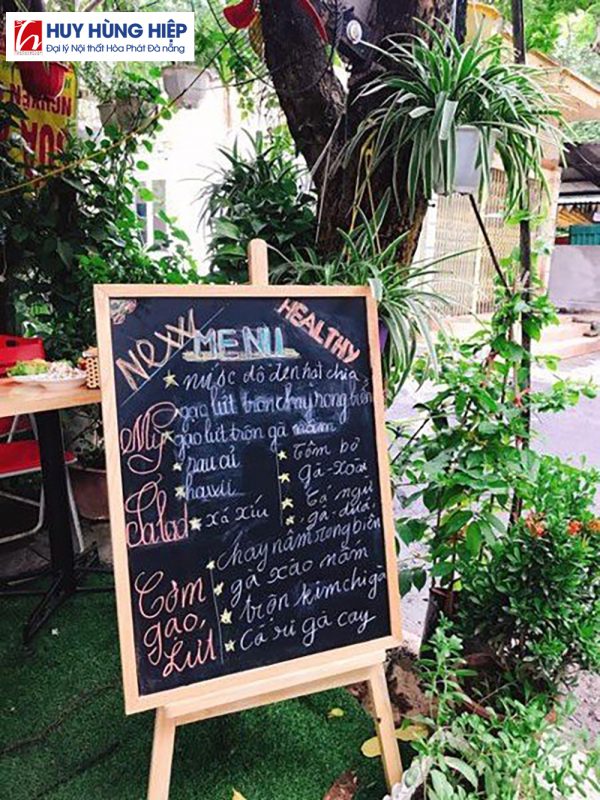 HUY HÙNG HIỆP
Đại lý Nội thất Hòa Phát Đà nẵng
New
MENU
HEALTHY
nước đỗ đen hạt chia
Mỳ
gạo lứt trộn chay rong biển
gạo lứt trộn gà
Salad
rau củ
hawii
xá xíu
Tôm bơ
gà-xoài
Cá ngừ
gà, dứa,
Cơm
gạo,
Lứt
chay nấm rong biển
gà xào nấm
trộn kim chi gà
Cà ri gà cay